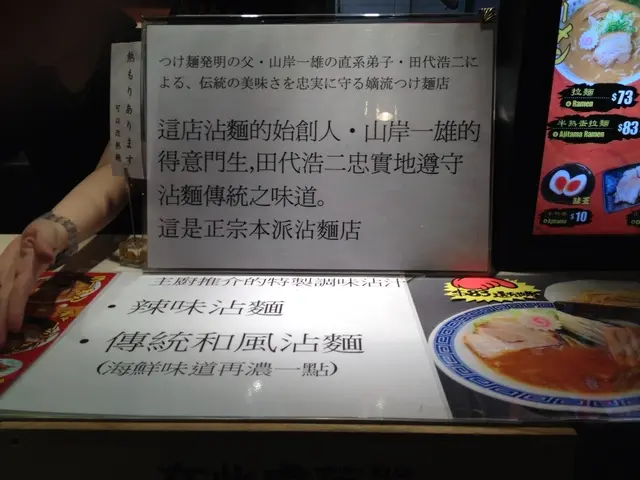 つけ麺発明の父・山岸一雄の直系弟子・田代浩二に
よる、伝統の美味さを忠実に守る嫡流つけ麺店
這店沾麵的始創人・山岸一雄的
得意門生,田代浩二忠實地遵守
沾麵傳統之味道。
這是正宗本派沾麵店
熱もりあります
主廚推介的特製調味沾汁
・辣味沾麵
・傳統和風沾麵
(海鮮味道再濃一點)
拉麵
Ramen
$73
半熟蛋拉麵
Ajitama Ramen
$83
$10